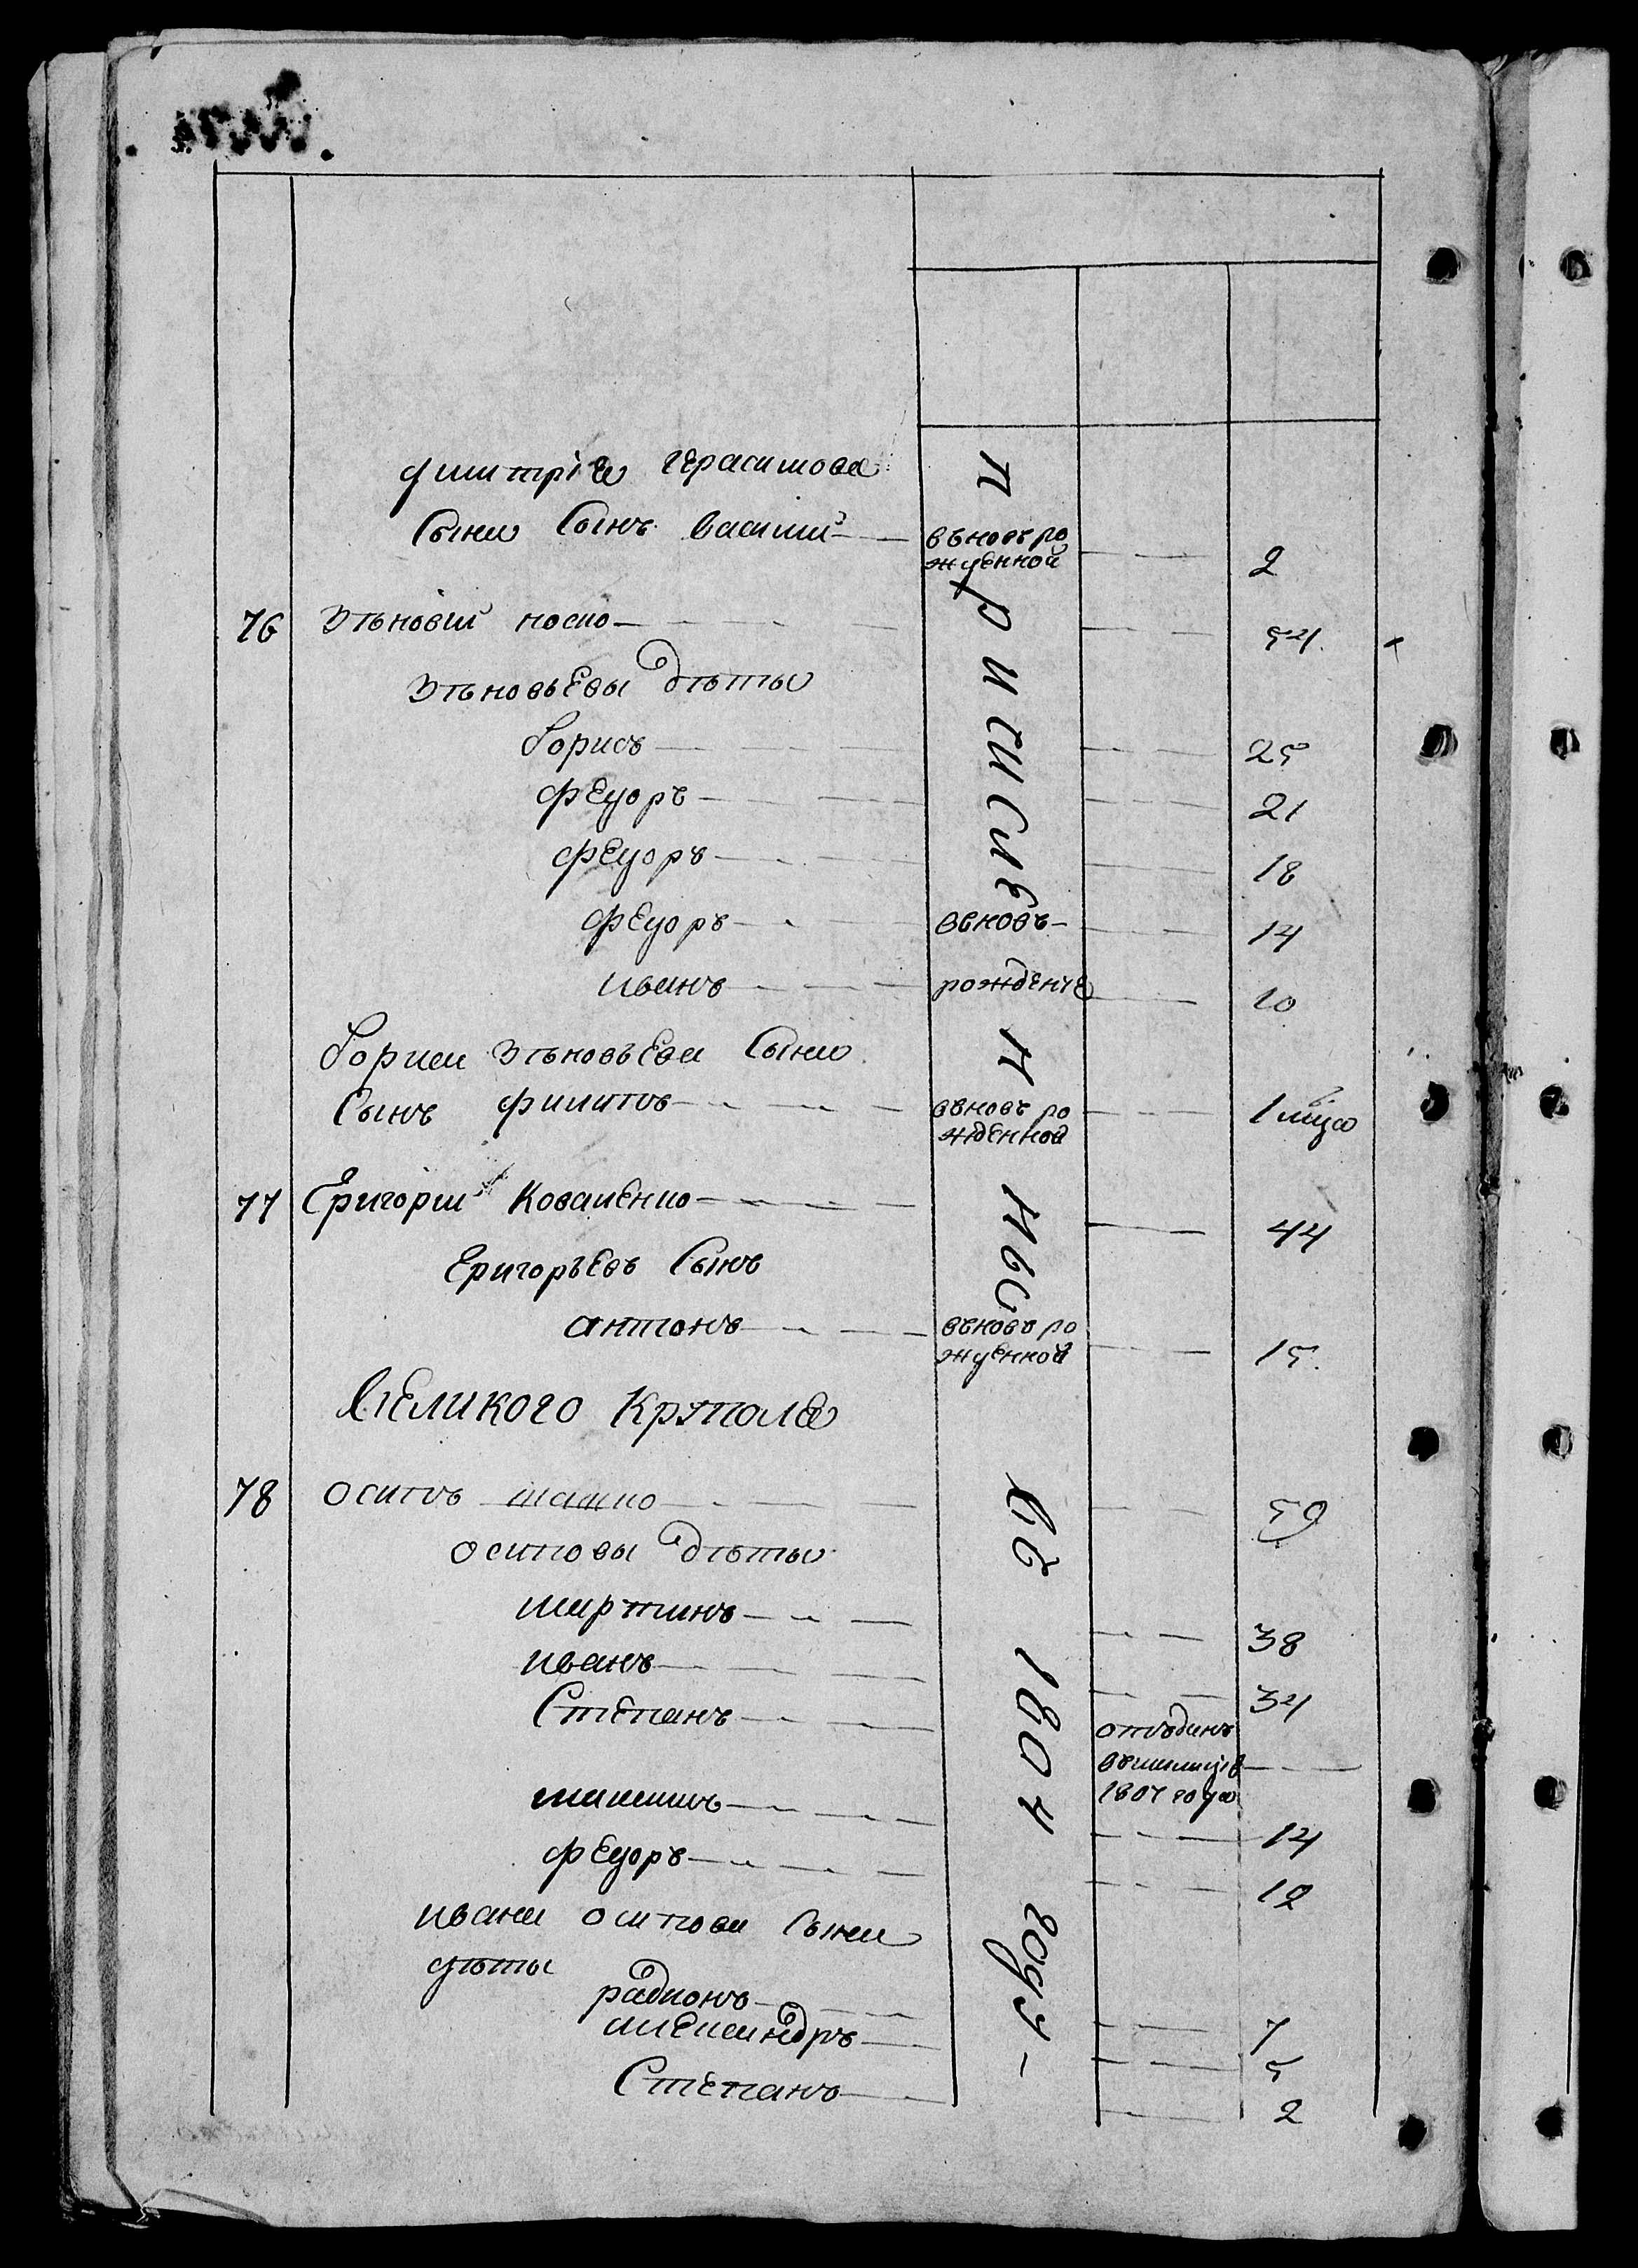 дмитрія герасимова
Сына Сынъ василий вьновь ро 2
жденной
76 Зѣновій носко 54
Зѣновьевы дѣты
борисъ 25
федоръ 21
федоръ 18
федоръ вьновь 14
иванъ рожденіе 10
бориса Зѣновьева Сына
Сынъ филипъ вьновь ро 1 мцъ
жденной
77 Григорій Коваленко 44
Григорьевъ Сынъ
антонъ вьновь ро 15
жденной
Великого Крупола
78 осипъ 59
осиповы дѣты
мартинъ 38
иванъ 34
Степанъ отъданъ
вьмилицію
1807 года
максимъ 14
федоръ 12
ивана осипова Сына
дѣты
радионъ 7
александръ 5
Степанъ 2
При числе
Н
Нъ
въ 1804 году